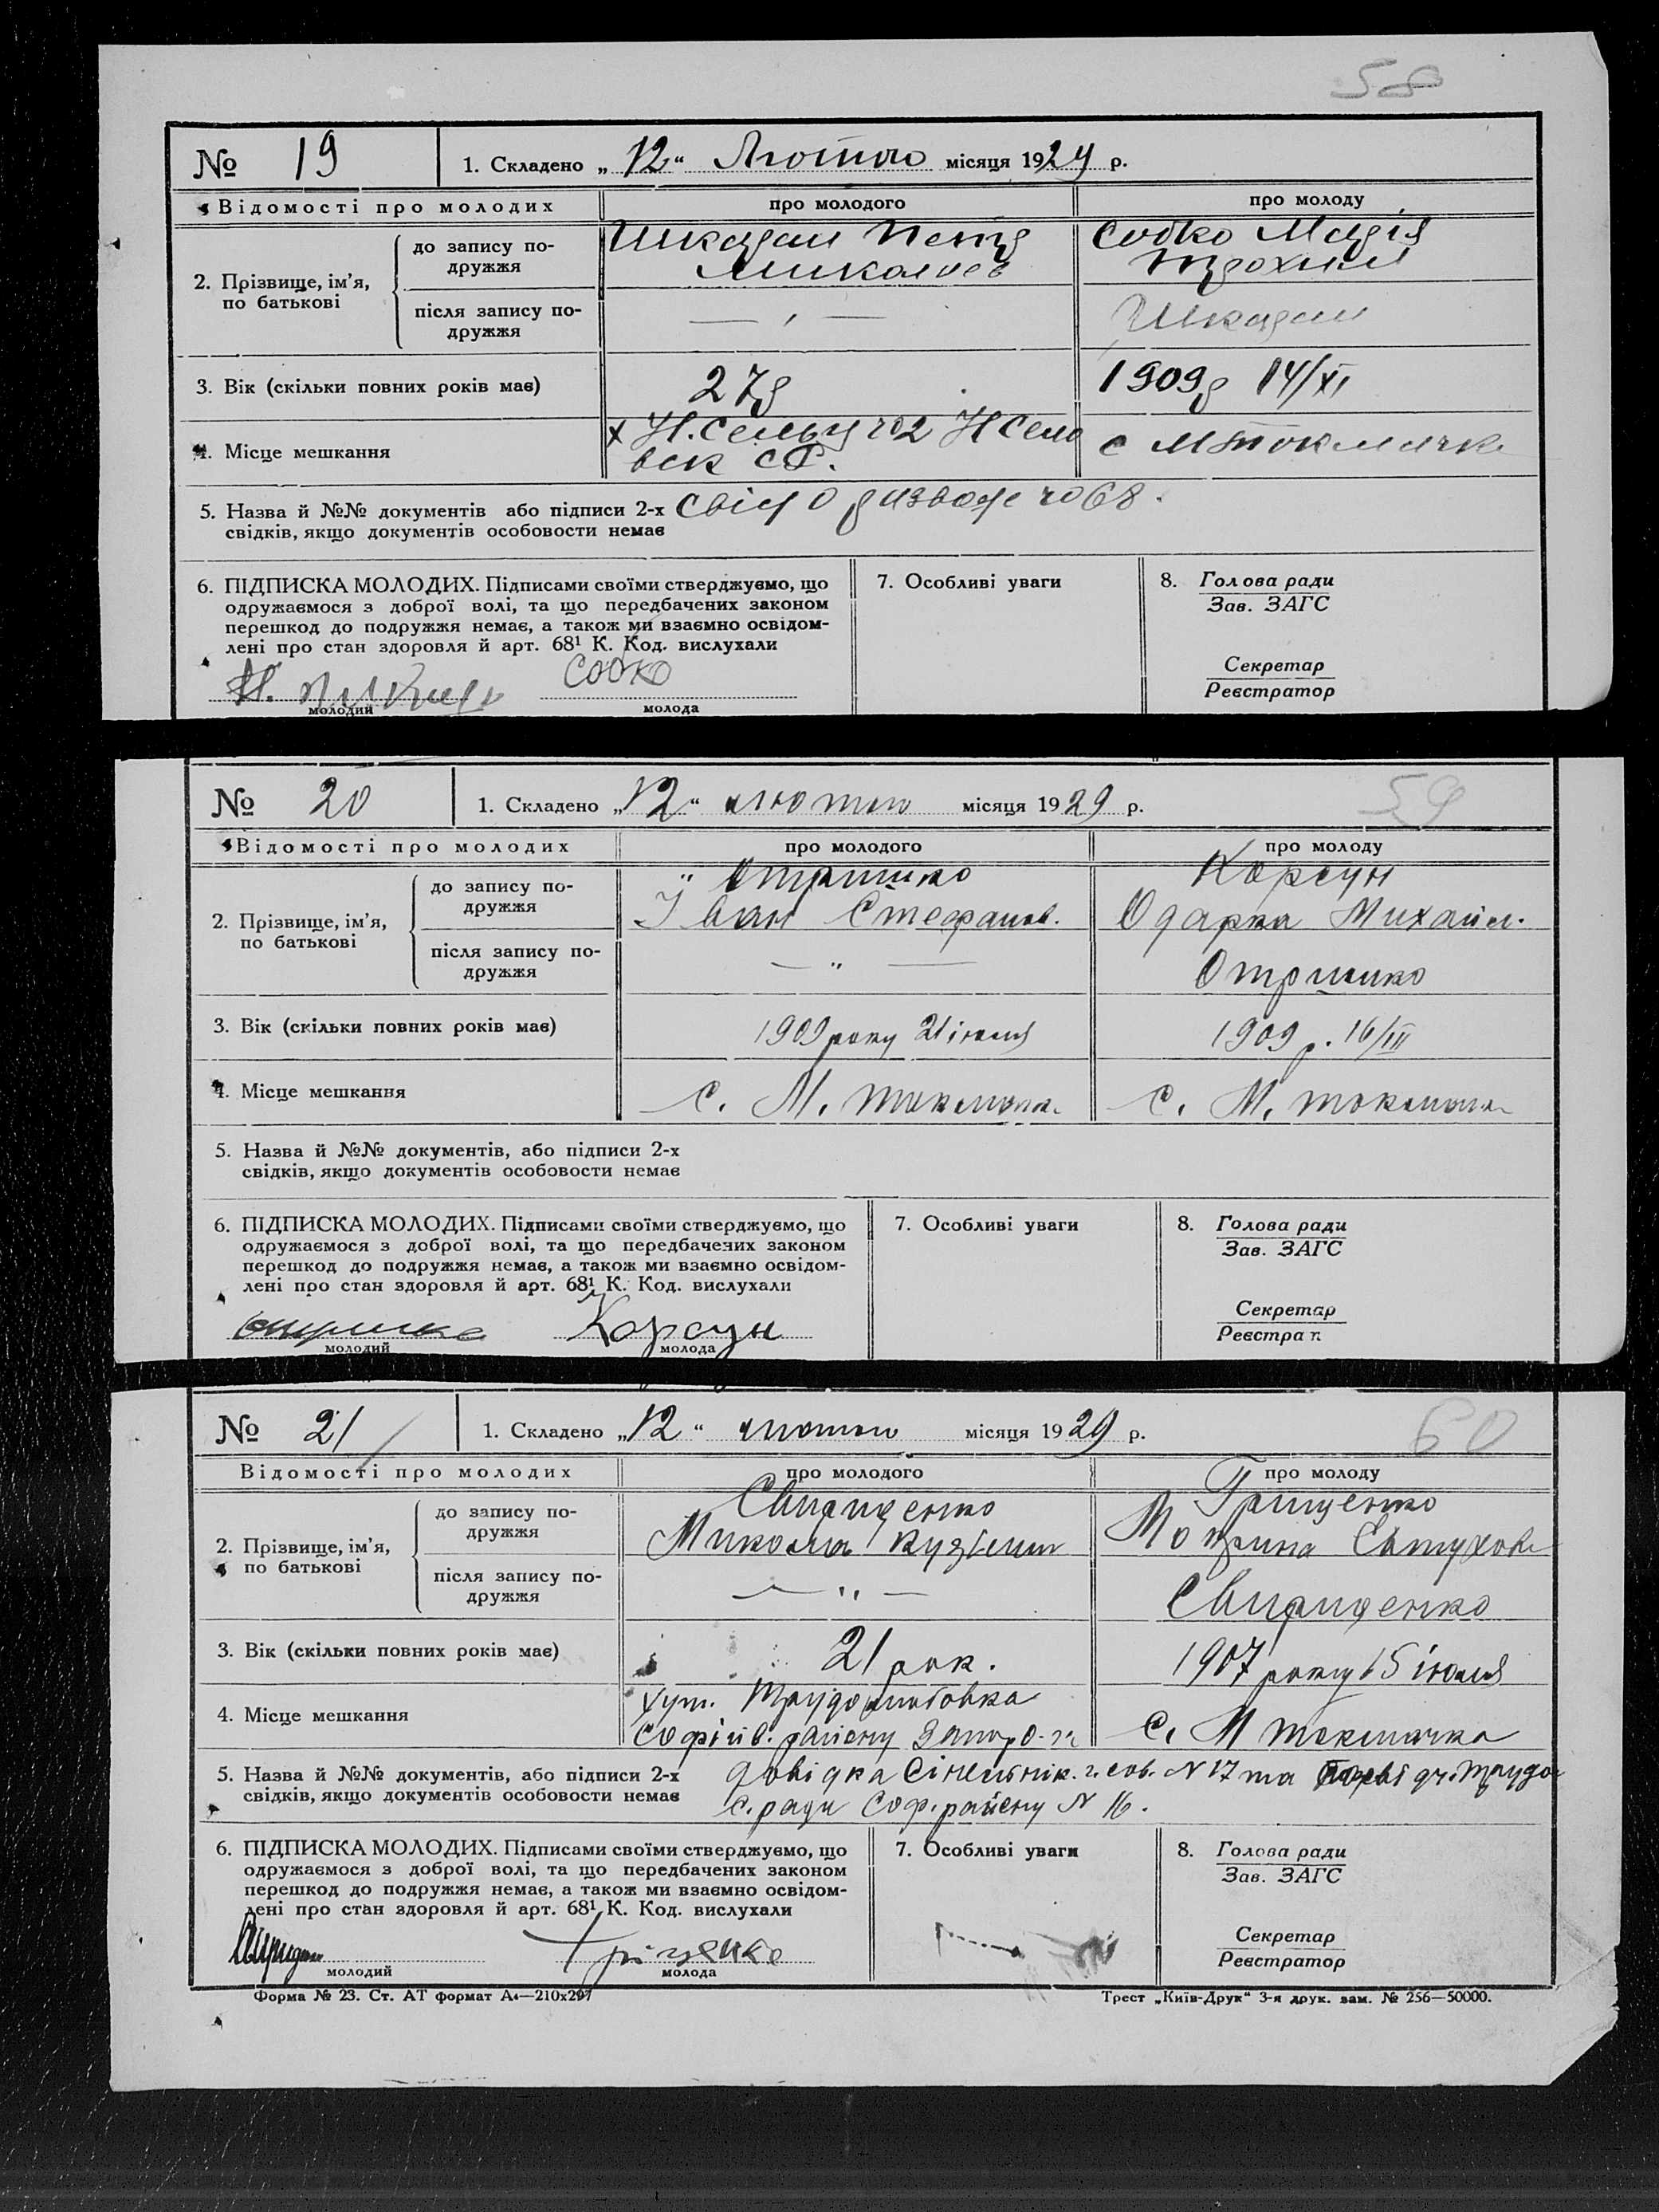 58
№ 19 1. Складено „12" Лютого місяця 1929 р.
Відомості про молодих про молодого про молоду
2. Прізвище, ім'я, по батькові
до запису подружжя
Шкадан Петр Собко Марія
Миколаев Трохим
після запису подружжя
— „ — Шкадан
3. Вік (скільки повних років має) 27р 1909р 14/XI
4. Місце мешкання
с М Токмачка
5. Назва й №№ документів або підписи 2-х Свід о розводе 68.
свідків, якщо документів особовости немає
6. ПІДПИСКА МОЛОДИХ. Підписами своїми стверджуємо, що 7. Особливі уваги 8. Голова ради
одружаємося з доброї волі, та що передбачених законом Зав. ЗАГС
перешкод до подружжя немає, а також ми взаємно освідом-
лені про стан здоровля й арт. 68¹ К. Код. вислухали
Секретар
Собко Реєстратор
молодий молода
№ 20 1. Складено „12" лютого місяця 1929 р. 59
Відомості про молодих про молодого про молоду
2. Прізвище, ім'я, по батькові
до запису подружжя
Отришко Корсун
Іван Стефанов. Одарка Михайл.
після запису подружжя
— „ — Отришко
3. Вік (скільки повних років має) 1909 року 21 іюля 1909 р. 16/III
4. Місце мешкання с. М. Токмачка с. М. Токмачка
5. Назва й №№ документів, або підписи 2-х
свідків, якщо документів особовости немає
6. ПІДПИСКА МОЛОДИХ. Підписами своїми стверджуємо, що 7. Особливі уваги 8. Голова ради
одружаємося з доброї волі, та що передбачених законом Зав. ЗАГС
перешкод до подружжя немає, а також ми взаємно освідом-
лені про стан здоровля й арт. 68¹ К. Код. вислухали
Секретар
Отришко Корсун Реєстра
молодий молода
№ 21 1. Складено „12" лютого місяця 1929 р. 60
Відомості про молодих про молодого про молоду
2. Прізвище, ім'я, по батькові
до запису подружжя
Свириденко Грищенко
Микола Кузьмич Мотрина Євтухов
після запису подружжя
— „ — Свириденко
3. Вік (скільки повних років має) 21 рок. 1907 року 15 іюля
4. Місце мешкання хут.
Софіїв. району Запор. с. М Токмачка
5. Назва й №№ документів, або підписи 2-х Довідка N 17 та
свідків, якщо документів особовости немає с. ради Соф. району N 16.
6. ПІДПИСКА МОЛОДИХ. Підписами своїми стверджуємо, що 7. Особливі уваги 8. Голова ради
одружаємося з доброї волі, та що передбачених законом Зав. ЗАГС
перешкод до подружжя немає, а також ми взаємно освідом-
лені про стан здоровля й арт. 68¹ К. Код. вислухали
Секретар
Гріщенко Реєстратор
молодий молода
Форма № 23. Ст. АТ формат А₄—210х297 Трест „Київ-Друк" 3-я друк. зам. № 256—50000.